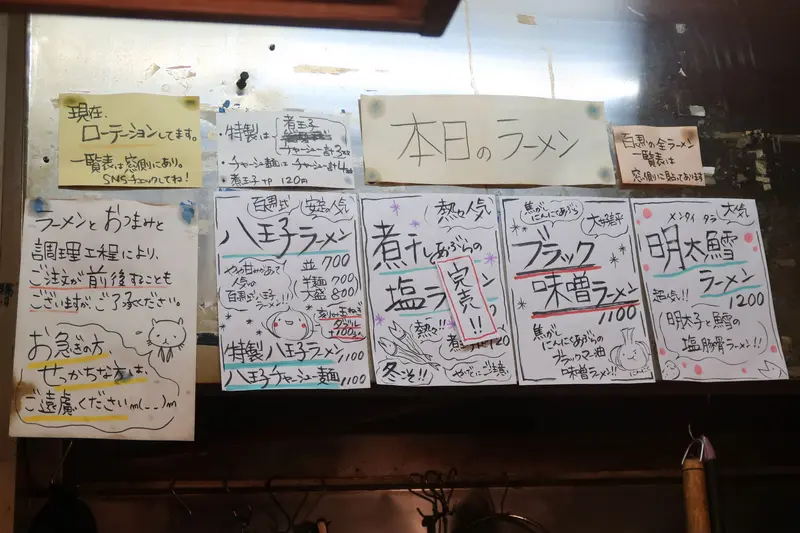 現在、
ローテーションしてます。
一覧表は窓側にあり。
SNSチェックしてね!
・特製は 煮玉子
チャーシュー計3枚
・チャーシュー麺はチャーシュー計4枚
・煮玉子 120円
本日のラーメン
百馬の全ラーメン
一覧表は
窓側に貼ってあります
ラーメンとおつまみと
調理工程により、
ご注文が前後することも
ございますが、ご了承ください。
お急ぎの方、
せっかちな方は、
ご遠慮くださいm(__)m
百馬式 安定の人気
八王子ラーメン
並 700
半麺 700
大盛 800
人気の
刻み玉ねぎ
ダブル
+100
特製八王子ラーメン 1100
八王子チャーシュー麺 1100
熱々人気
煮干しとあぶらの
塩ラ
ン
完売!!
熱々!!
冬こそ!!
やけどにご注意
焦がし
にんにくあぶら
大好評
ブラック
味噌ラーメン
1100
焦がし
にんにくあぶらの
ブラックマー油
味噌ラーメン!!
メンタイ タラ
大人気
明太鱈
ラーメン
超人気!!
1200
明太子と鱈の
塩豚骨ラーメン!!